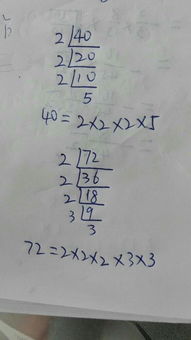 2 40
2 20
2 10
5
40=2×2×2×5
2 72
2 36
2 18
3 9
3
72=2×2×2×3×3